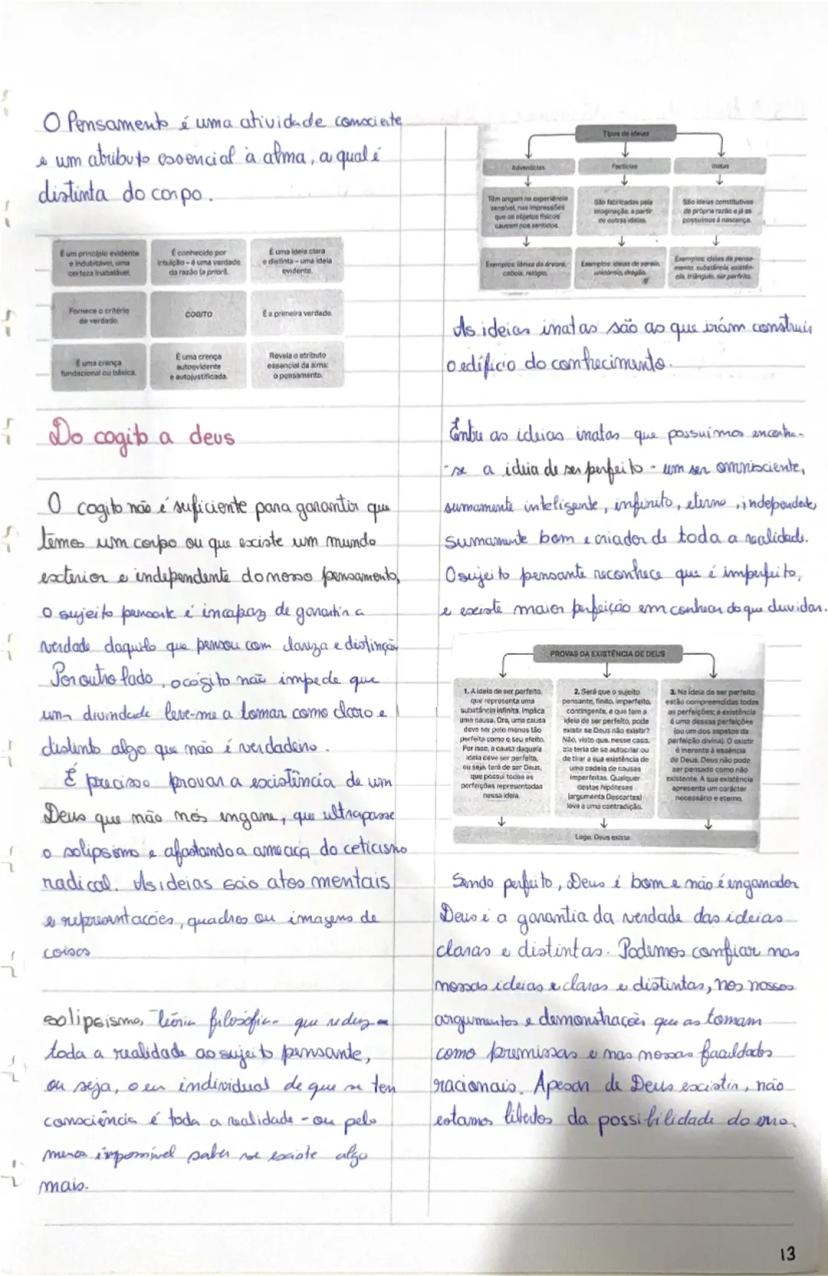 O Pensamento é uma atividade consciente
e um atributo essencial à alma, a qual é
distinta do corpo.
É um princípio evidente
e indubitável, uma
certeza inabalável.
É conhecido por
intuição - é uma verdade
da razão (a priori).
É uma ideia clara
e distinta - uma ideia
evidente.
Fornece o critério
de verdade.
COGITO
É a primeira verdade.
É uma crença
fundacional ou básica.
É uma crença
autoevidente
e autojustificada.
Revela o atributo
essencial da alma:
o pensamento.
Do cogito a deus
O cogito não é suficiente para garantir que
temos um corpo ou que existe um mundo
exterior e independente do nosso pensamento,
o sujeito pensante é incapaz de garantir a
verdade daquilo que pensou com clareza e distinção
Por outro lado, o cógito não impede que
uma divindade leve-me a tomar como claro e
distinto algo que não é verdadeiro.
É preciso provar a existência de um
Deus que não nos engane, que ultrapasse
o solipsismo e afastando a ameaça do ceticismo
radical. As ideias são atos mentais
e representações, quadros ou imagens de
coisas
solipsismo, teoria filosófica que reduz
toda a realidade ao sujeito pensante,
ou seja, o eu individual de que se tem
consciência é toda a realidade - ou pelo
menos impossível saber se existe algo
mais.
Tipos de ideias
Adventícias
Factícias
Inatas
Têm origem na experiência
sensível, nas impressões
que os objetos físicos
causam nos sentidos.
São fabricadas pela
imaginação, a partir
de outras ideias.
São ideias constitutivas
da própria razão e já as
possuímos à nascença.
Exemplos: ideias de árvore,
cabela, relógio.
Exemplos: ideias de sereia,
unicórnio, dragão.
Exemplos: ideias de pensa-
mento, substância, existên-
cia, triângulo, ser perfeito.
As ideias inatas são as que irám construir
o edifício do conhecimento.
Entre as ideias inatas que possuimos encontra-
-se a ideia de ser perfeito - um ser omnisciente,
sumamente inteligente, infinito, eterno, independente,
sumamente bom e criador de toda a realidade.
O sujeito pensante reconhece que é imperfeito,
e existe maior perfeição em conhecer do que duvidar.
PROVAS DA EXISTÊNCIA DE DEUS
1. A ideia de ser perfeito,
que representa uma
substância infinita, implica
uma causa. Ora, uma causa
deve ser pelo menos tão
perfeita como o seu efeito.
Por isso, a causa daquela
ideia deve ser perfeita,
ou seja, terá de ser Deus,
que possui todas as
perfeições representadas
nessa ideia.
2. Será que o sujeito
pensante, finito, imperfeito,
contingente, e que tem a
ideia de ser perfeito, pode
existir se Deus não existir?
Não, visto que, nesse caso,
ele teria de se autocriar ou
de tirar a sua existência de
uma cadeia de causas
imperfeitas. Qualquer
destas hipóteses
(argumenta Descartes)
leva a uma contradição.
3. Na ideia de ser perfeito
estão compreendidas todas
as perfeições; a existência
é uma dessas perfeições
(ou um dos aspetos da
perfeição divina). O existir
é inerente à essência
de Deus. Deus não pode
ser pensado como não
existente. A sua existência
apresenta um carácter
necessário e eterno.
Logo, Deus existe.
Sendo perfeito, Deus é bom e não é enganador
Deus é a garantia da verdade das ideias
claras e distintas. Podemos confiar nas
nossas ideias e claras e distintas, nos nossos
argumentos e demonstrações que as tomam
como premissas e nas nossas faculdades
racionais. Apesar de Deus existir, não
estamos libertos da possibilidade do erro.
13